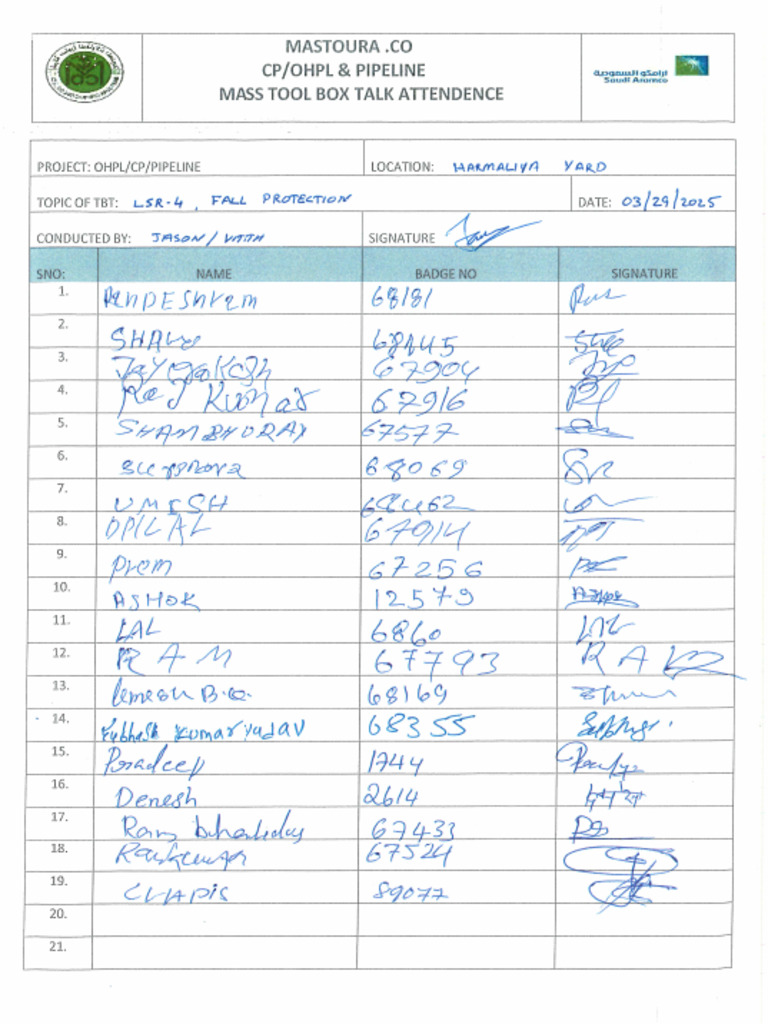 MASTOURA .CO
CP/OHPL & PIPELINE
MASS TOOL BOX TALK ATTENDENCE
ارامكو السعودية
Saudi Aramco
PROJECT: OHPL/CP/PIPELINE LOCATION: HARMALIYA YARD
TOPIC OF TBT: LSR-4, FALL PROTECTION DATE: 03/29/2025
CONDUCTED BY: JASON/ SIGNATURE
SNO: NAME BADGE NO SIGNATURE
1. 68181
2. 68445
3. Jay Prakash 67904
4. Raj Kumar 67916
5. SHAMBHURAY 67577
6. 68069
7. UMESH 68462
8. DPILAL 67914
9. Prem 67256
10. ASHOK 12579
11. LAL 6860
12. RAM 67793 RAM
13. Umesh B.K. 68169
14. Subhash Kumar yadav 68355
15. Pradeep 1744
16. Denesh 2614
17. Ram 67433
18. 67524
19. 89077
20.
21.